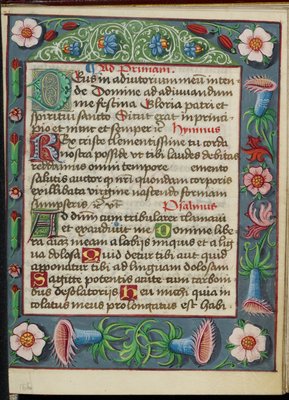 Ad Primam
Deus in adiutorium meum inten
de Domine ad adiuuandum
me festina Gloria patri et
spiritui sancto Sicut erat in princi
pio et nunc et semper Hymnus
Rex criste clementissime tu corda
nostra posside ut tibi laudes debitas
reddamus omni tempore Memento
salutis auctor nostri quondam corporis
ex illibata virgine nascendo formam
sumpseris Psalmus
Ad dnm cum tribularer clamaui
et exaudiuit me Domine libe
ra aiam meam a labijs iniquis et a lig
ua dolosa Quid detur tibi aut quid
apponatur tibi ad linguam dolosam
Sagitte potentis acute cum carboni
bus desolatorijs Heu michi quia in
colatus meus prolongatus est habi